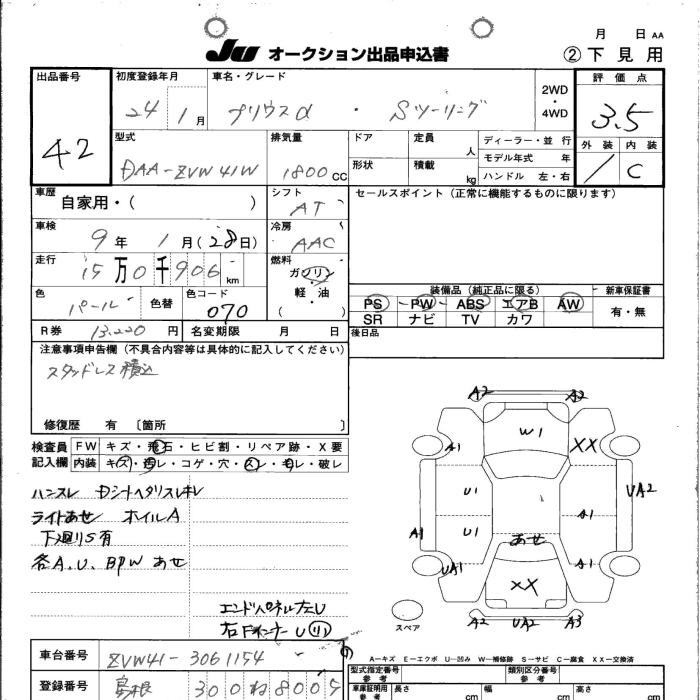 月 日 AA
JU オークション出品申込書 ②下見用
出品番号 初度登録年月 車名・グレード 2WD ・ 4WD 評価点
42 24 1月 プリウスα ・ Sツーリング 3.5
型式 排気量 ドア 定員 人 ディーラー・並行 外装 内装
DAA-ZVW41W 1800cc 形状 積載 kg モデル年式 年 / C
ハンドル 左・右
車歴 自家用・( ) シフト AT セールスポイント(正常に機能するものに限ります)
車検 9年 1月(28日) 冷房 AAC
走行 15万0千906km 燃料 ガソリン
軽・油
( )
装備品(純正品に限る) 新車保証書
色 パール 色替 色コード 070
PS PW ABS エアB AW 有・無
SR ナビ TV カワ
R券 13,220円 名変期限 月 日 後日品
注意事項申告欄(不具合内容等は具体的に記入してください)
スタッドレス積込
修復歴 有 〔箇所 〕
検査員 FW キズ・飛石・ヒビ割・リペア跡・X要
記入欄 内装 キズ・汚レ・コゲ・穴・スレ・モレ・破レ
ハンスレ Dシートヘタリスレキレ
ライトあせ ホイルA
下廻りS有
各A.U.BPW あせ
エンドパネル左U
A2 A2
W1
A1 XX
U1 UA2
U1 A1
A1 あせ
UA1 A1
XX
A2 UA2 A3
スペア
A-キズ E-エクボ U-凹み W-補修跡 S-サビ C-腐食 XX-交換済
車台番号 ZVW41-3061154
型式指定番号 類別区分番号
参考 参考
登録番号 島根 300 ね 8005
車庫証明用 参考 長さ cm 幅 cm 高さ cm